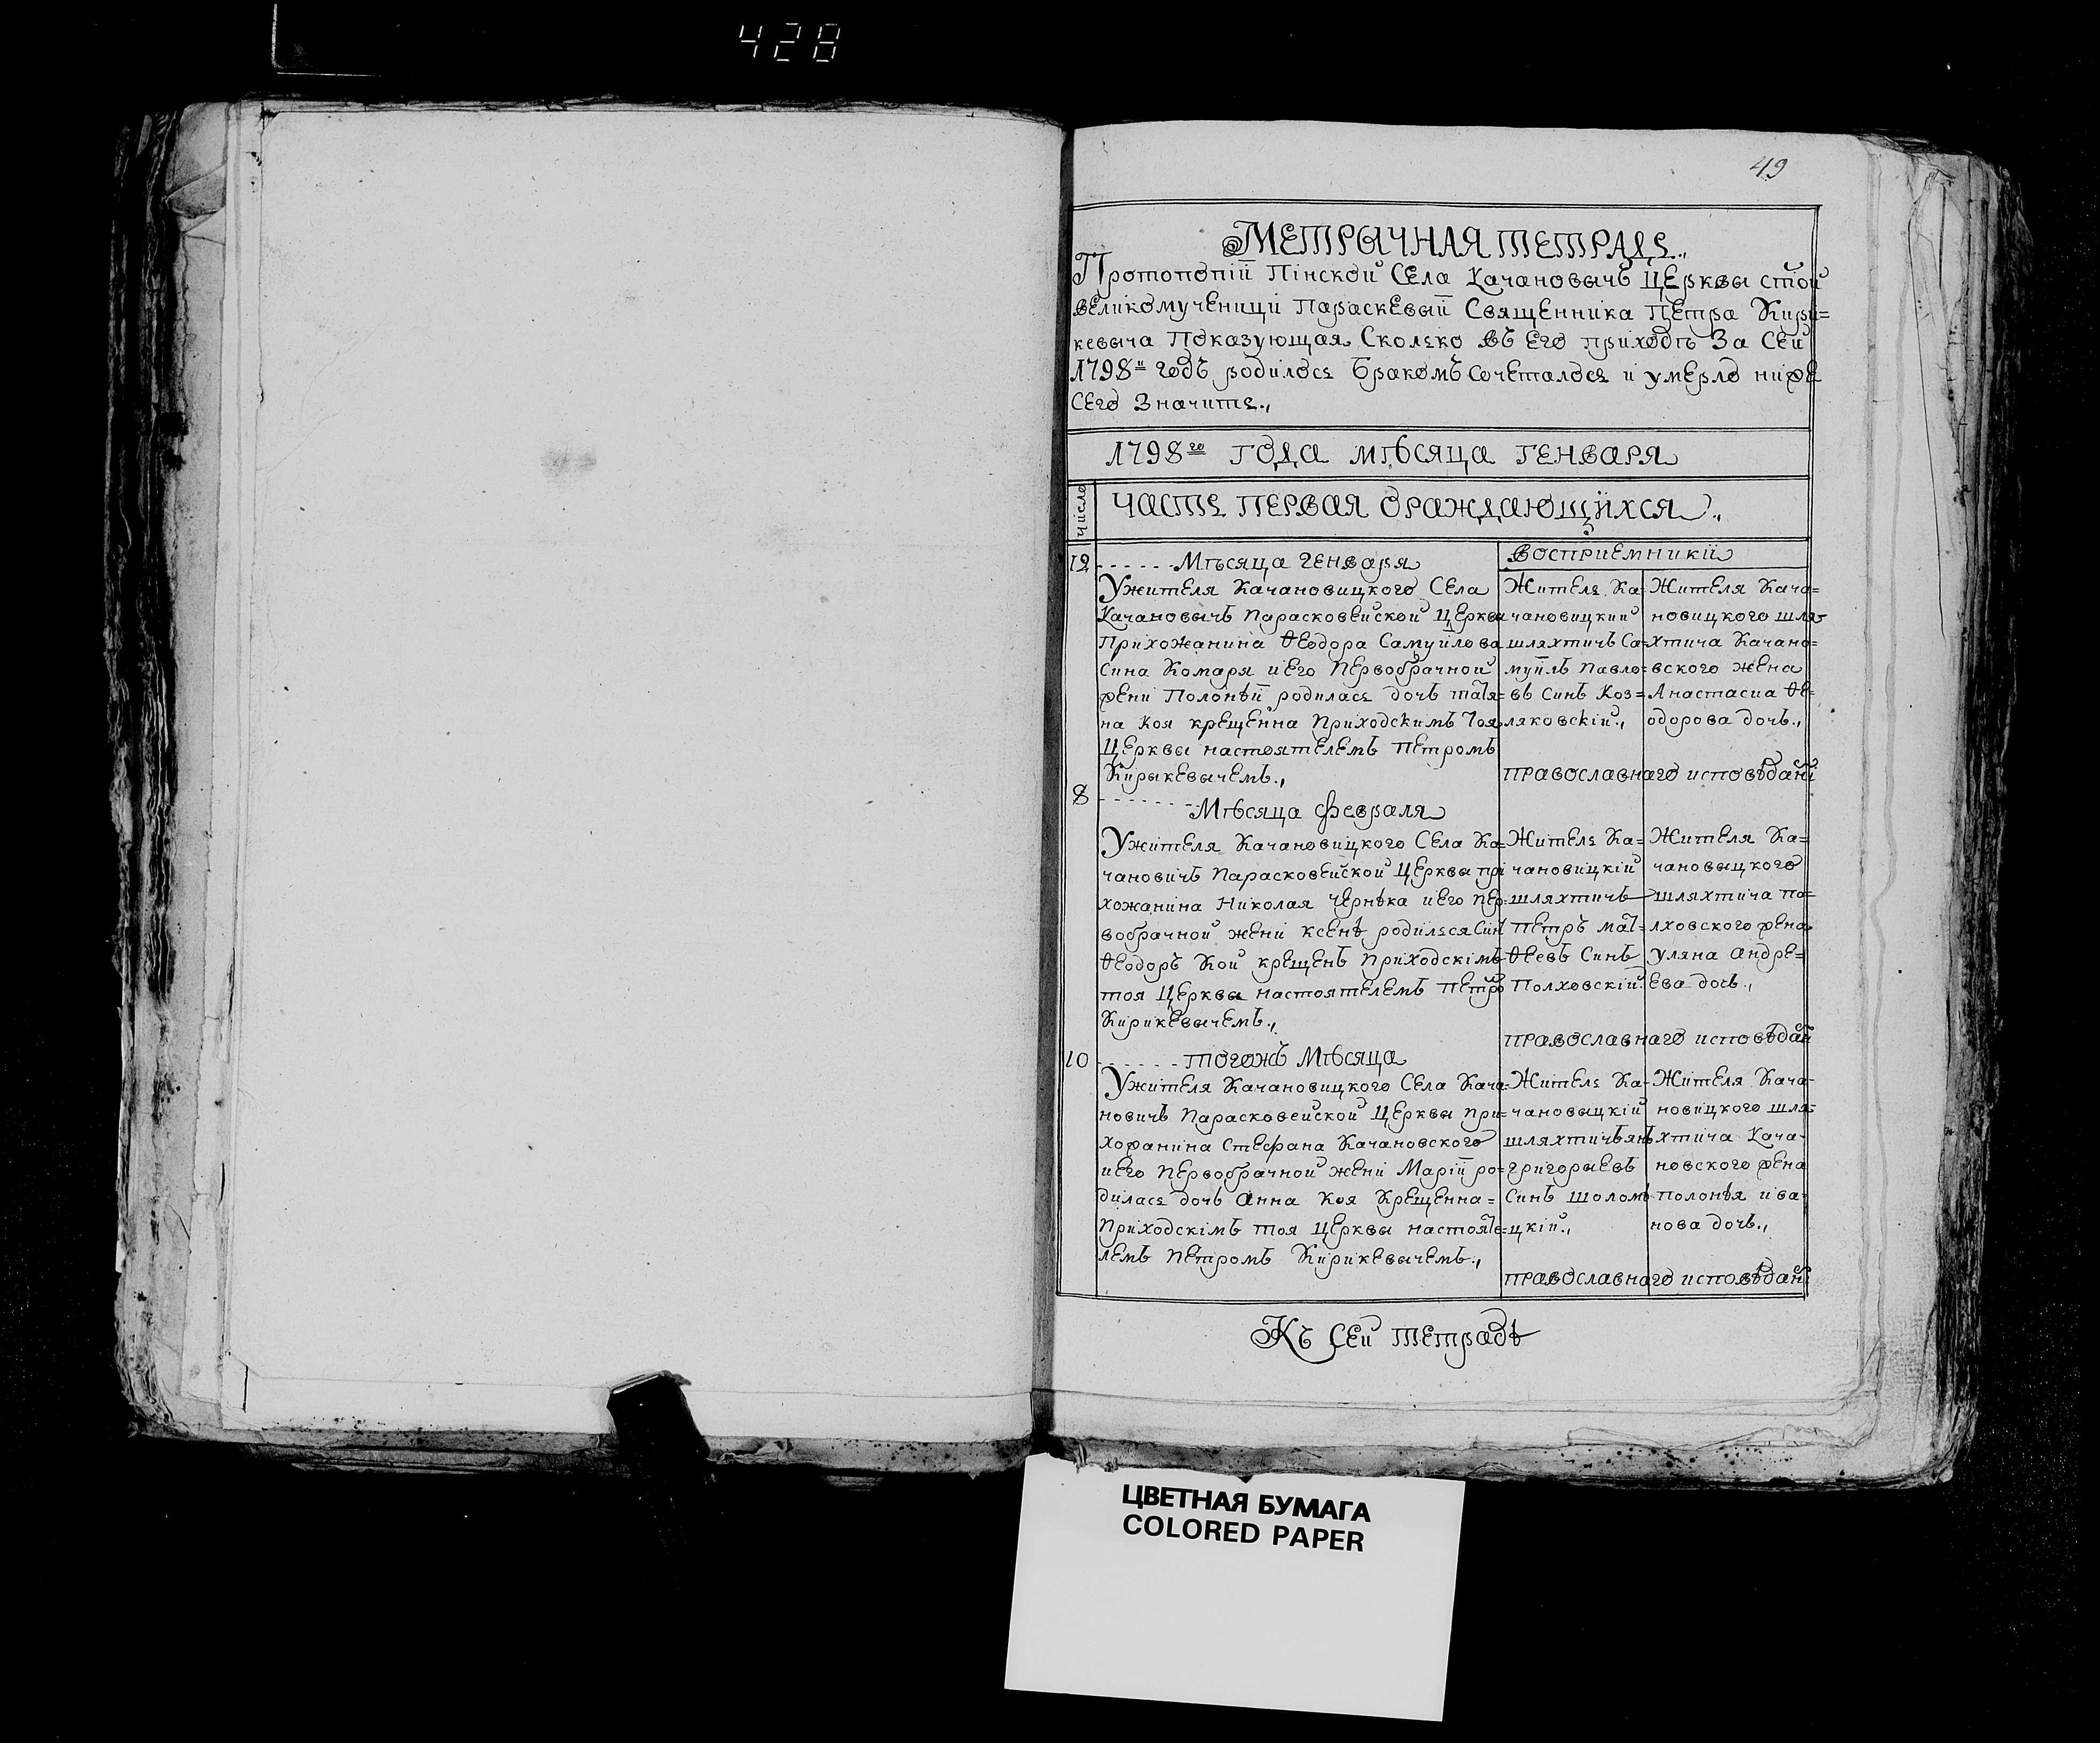 428
49
МЕТРЫЧНАЯ ТЕТРАДЬ.,
Протопопіи Пінской Села Качановычъ Церквы стой
великомученици Параскевыи Священника Петра Кири=
кевыча Показующая Сколько въ его приходѣ За Сей
1798й годъ родилось Бракомъ Сочеталось и умерло ниже
Сего Значитъ.,
1798го ГОДА МѢСЯЦА ГЕНВАРЯ
Число
ЧАСТЬ ПЕРВАЯ ОРАЖДАЮЩИХСЯ.,
Восприемники
12 - - - - - - Мѣсяца Генваря
Ужителя Качановицкого Села
Качановычъ Парасковейской Церквы
Прихожанина Ѳеодора Самуйлова
Сина Комаря иего Первобрачной
жени Полонѣи родилась дочь татя=
на Коя крещенна Приходскимъ Тоя
Церквы настоятелемъ Петромъ
Кирыкевычемъ.,
Жителъ Ка=
чановицкий
шляхтичъ Са=
муйлъ Павло=
въ Синъ Коз=
ляковскій.,
Жителя Кача=
новицкого шля=
хтича Качано=
вского жена
Анастасиа Ѳе=
одорова дочь.,
православнаго исповѣдані
8 - - - - - - - Мѣсяца Февраля
Ужителя Качановицкого Села Ка=
чановичъ Парасковейской Церквы при
хожанина Николая Чернѣка иего Пер=
вобрачной жени ксенѣ родилься Синъ
Ѳеодоръ Кой крещенъ Приходскімъ
тоя Церквы настоятелемъ Петро
Кирикевычемъ.,
Жителъ Ка=
чановицкій
шляхтичъ
Петръ мат=
Ѳеевъ Синъ
Полховскій.
Жителя Ка=
чановыцкого
шляхтича по=
лховского жена
уляна андре=
ева дочь.,
православнаго исповѣдан
10 - - - - - - тогожъ Мѣсяца
Ужителя Качановицкого Села Кача=
новичъ Парасковейской Церквы при=
хожанина Стефана Качановского
иего Первобрачной жени Маріи ро=
дилась дочь Анна Коя Крещенна=
Приходскімъ тоя Церквы настояте=
лемъ Петромъ Кирикевычемъ.,
Жителъ Ка=
чановыцкій
шляхтичъ янъ
григорыевъ
Синъ шоломъ
цкій.,
Жителя Кача=
новицкого шля=
хтича Кача=
новского жена
Полонѣя ива=
нова дочь.,
православнаго исповѣдані
Къ Сей тетрадѣ
ЦВЕТНАЯ БУМАГА
COLORED PAPER